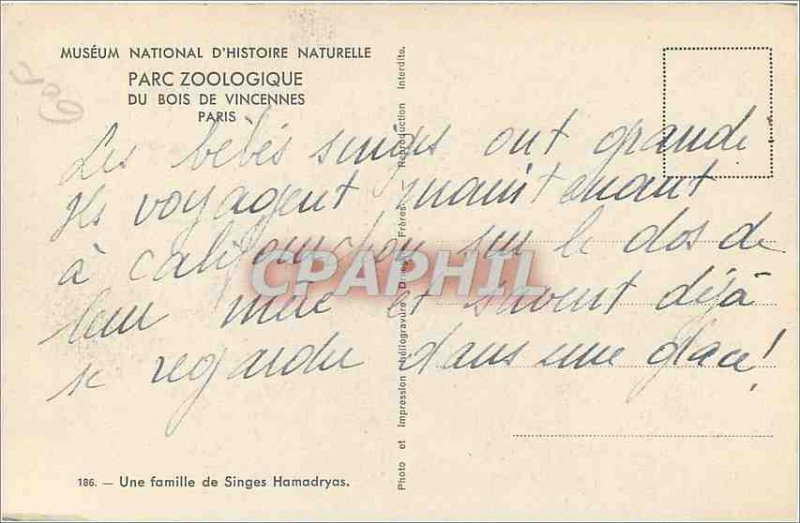 MUSÉUM NATIONAL D'HISTOIRE NATURELLE
PARC ZOOLOGIQUE
DU BOIS DE VINCENNES
PARIS
Les bébés singes ont grandi
Ils voyagent maintenant
à califourchon sur le dos de
leur mère et savent déjà
se regarder dans une glace!
186. — Une famille de Singes Hamadryas.
Photo et impression héliogravure Frères. — Reproduction interdite.
CPAPHIL